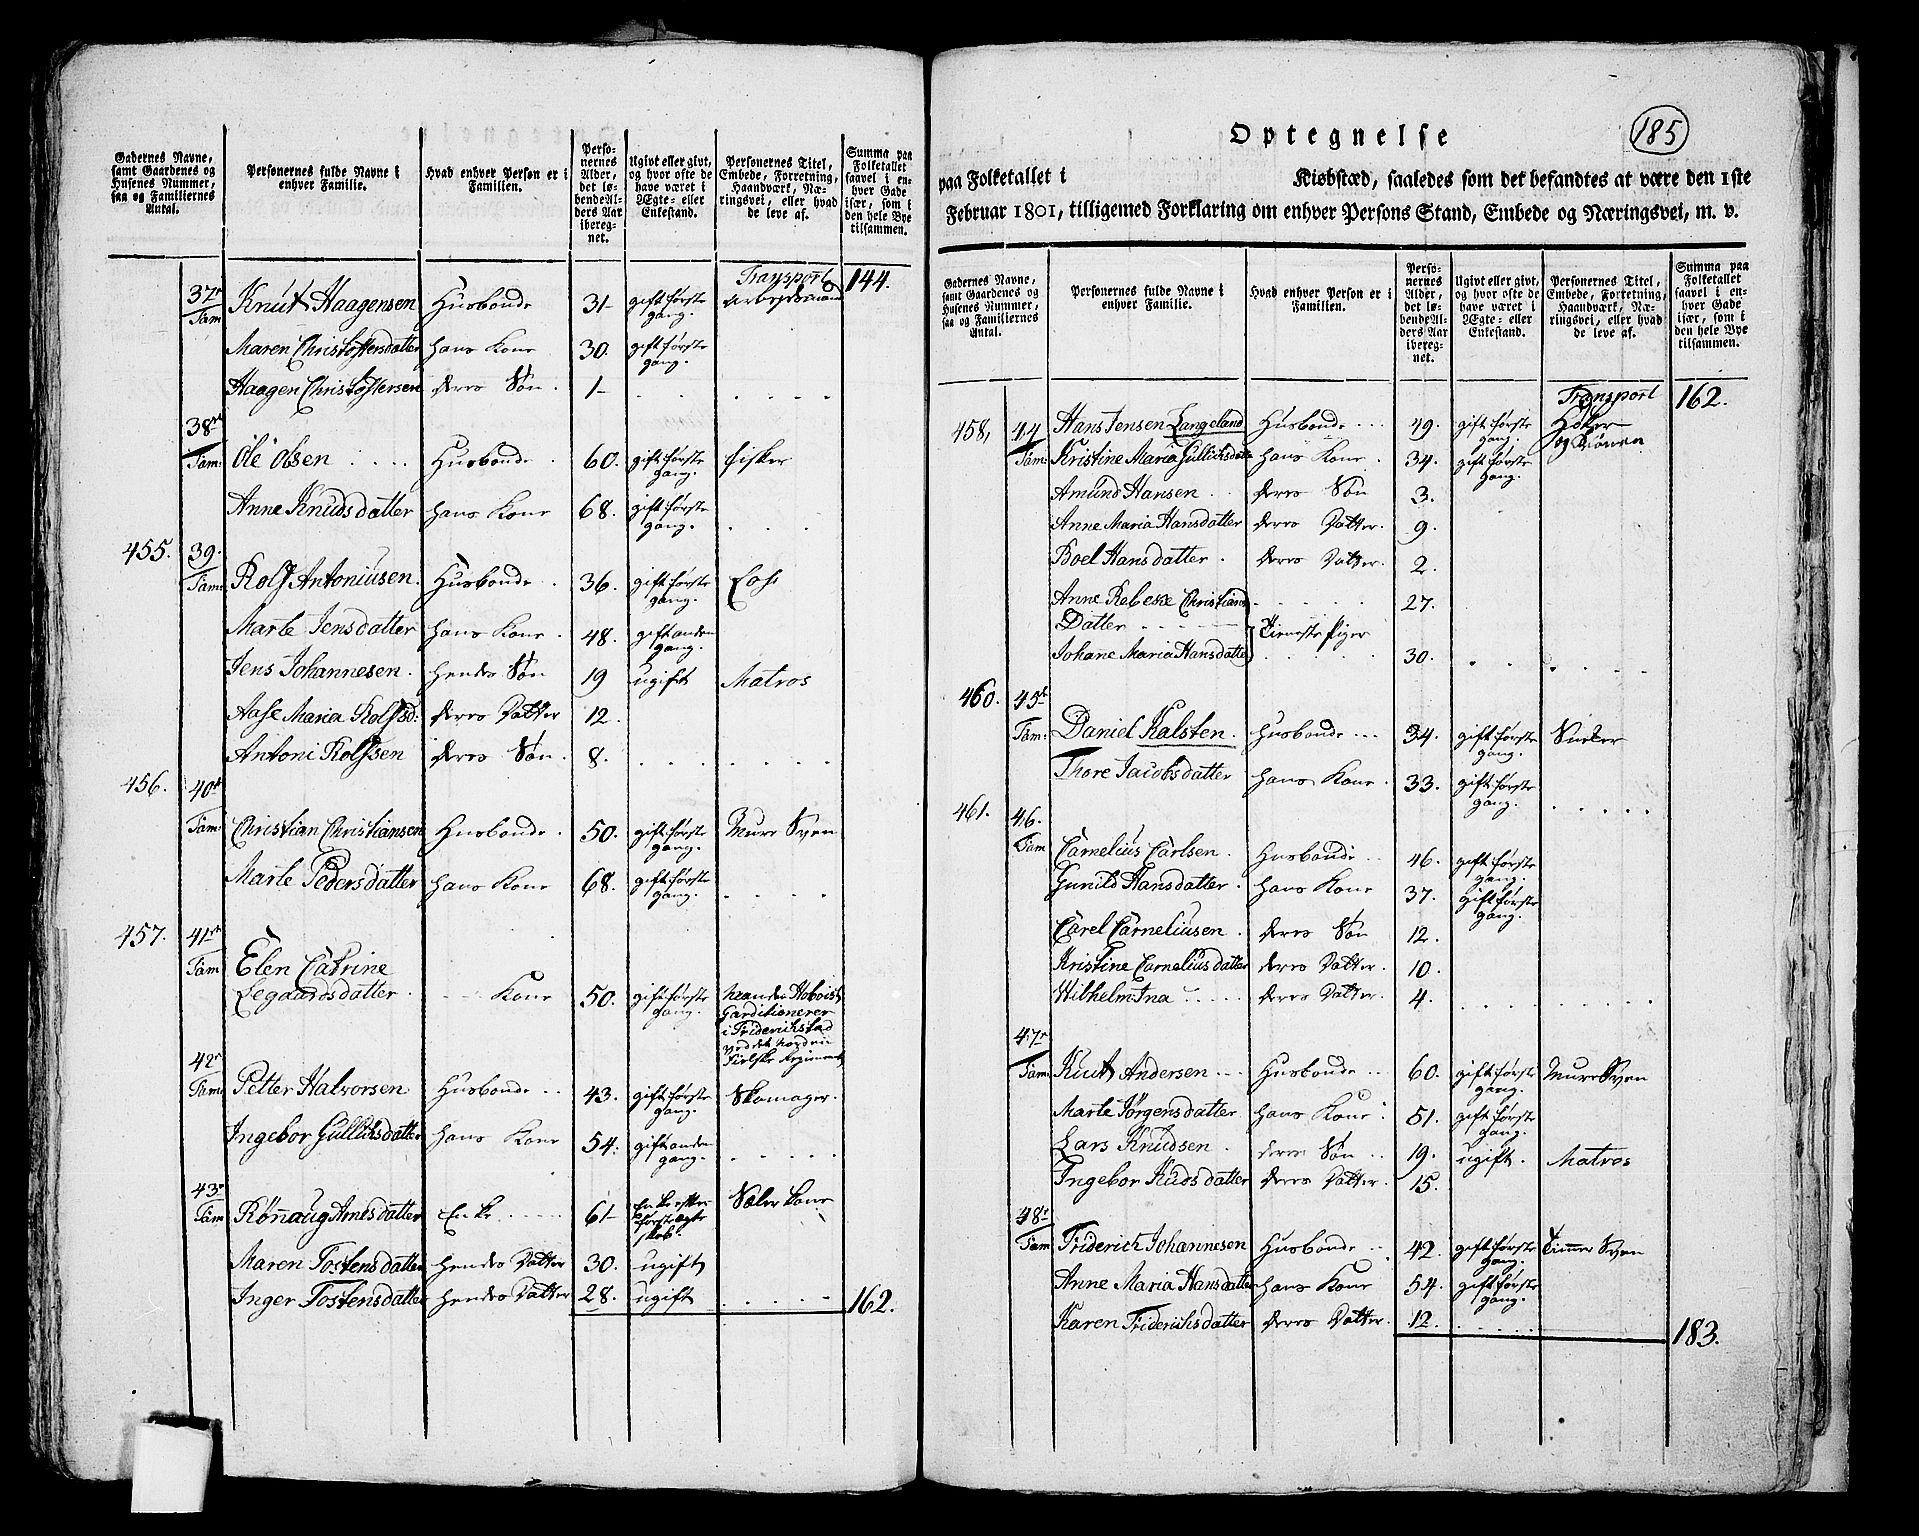 Gadernes Navne, samt Gaardenes og Husenes Nummer, saa og Familiernes Antal.
Personernes fulde Navne i enhver Familie.
Hvad enhver Person er i Familien.
Personernes Alder, det løbende Alders Aar iberegnet.
Ugivt eller givt, og hvor ofte de have været i Ægte- eller Enkestand.
Personernes Titel, Embede, Forretning, Haandværk, Næringsvei, eller hvad de leve af.
Summa paa Folketallet saavel i enhver Gade især, som i den hele Bye tilsammen.
Transport 144.
37te Fam Knut Haagensen Husbonde 31 gift første gang. Arbeydsmand
Maren Christoffersdatter hans Kone 30. gift første gang.
Haagen Christoffersen deres Søn. 1
38te Fam: Ole Olsen Husbonde 60. gift første gang. fisker
Anne Knudsdatter hans Kone 68. gift første gang.
455. 39. Fam: Rolf Antoniusen. Husbonde 36. gift første gang. Lots
Marte Jensdatter hans Kone. 48. gift anden gang.
Jens Johannesen. hendes Søn 19 ugift Matros
Aase Maria Rolfsd: deres Datter 12.
Antoni Rolfsen deres Søn. 8.
456. 40de Fam: Christian Christiansen Husbonde. 50. gift første gang. Muur Sven
Marte Pedersdatter hans Kone 68. gift første gang.
457. 41de Fam Elen Catrine
Legaardsdatter. Kone 50. gift første gang.
i Friderichstad
42de Fam: Petter Halvorsen Husbonde 43. gift første gang. Skomager.
Ingebor Gullichsdatter hans Kone 54. gift anden gang.
43de Fam Rønnaug Arnesdatter Enke 61 Enke efter første ægteskab.
Maren Tostensdatter hendes Datter 30. ugift
Inger Tostensdatter hendes Datter 28. ugift 162.
185
Optegnelse
paa Folketallet i Kiøbstæd, saaledes som det befandtes at være den 1ste
Februar 1801, tilligemed Forklaring om enhver Persons Stand, Embede og Næringsvei, m. v.
Gadernes Navne, samt Gaardenes og Husenes Nummer, saa og Familiernes Antal.
Personernes fulde Navne i enhver Familie.
Hvad enhver Person er i Familien.
Personernes Alder, det løbende Alders Aar iberegnet.
Ugivt eller givt, og hvor ofte de have været i Ægte- eller Enkestand.
Personernes Titel, Embede, Forretning, Haandværk, Næringsvei, eller hvad de leve af.
Summa paa Folketallet saavel i enhver Gade især, som i den hele Bye tilsammen.
Transport 162.
458, 44 Fam: Hans Jensen Langeland Husbonde 49. gift første gang. Høker
Kristine Maria Gullichsdatter hans Kone 34. gift første gang.
Amund Hansen deres Søn 3.
Anne Maria Hansdatter deres Datter. 9.
Boel Hansdatter. deres Datter. 2.
Anne Rebeke Christians 27.
Datter Tieneste Piger
Johane Maria Hansdatter 30.
460. 45de Fam: Daniel Kalsten. Husbonde 34. gift første gang. Sneker
Thore Jacobsdatter hans Kone. 33. gift første gang.
461. 46. Fam Carnelius Carlsen. Husbonde 46. gift første gang.
Gunild Hansdatter. hans Kone 37. gift første gang.
Carel Carneliusen. deres Søn 12.
Kristine Carneliusdatter deres Datter. 10.
Wilhelmina deres Datter. 4.
47de Fam: Knut Andersen Husbonde 60. gift første gang. Muur Sven
Marte Jørgensdatter hans Kone 51. gift første gang.
Lars Knudsen. deres Søn 19. ugift. Matros
Ingebor Kudsdatter deres Datter. 15.
48de Fam Friderich Johannesen Husbonde 42. gift første gang. Timmer Sven
Anne Maria Hansdatter hans Kone 54. gift første gang.
Karen Friderichsdatter deres Datter. 12. 183.